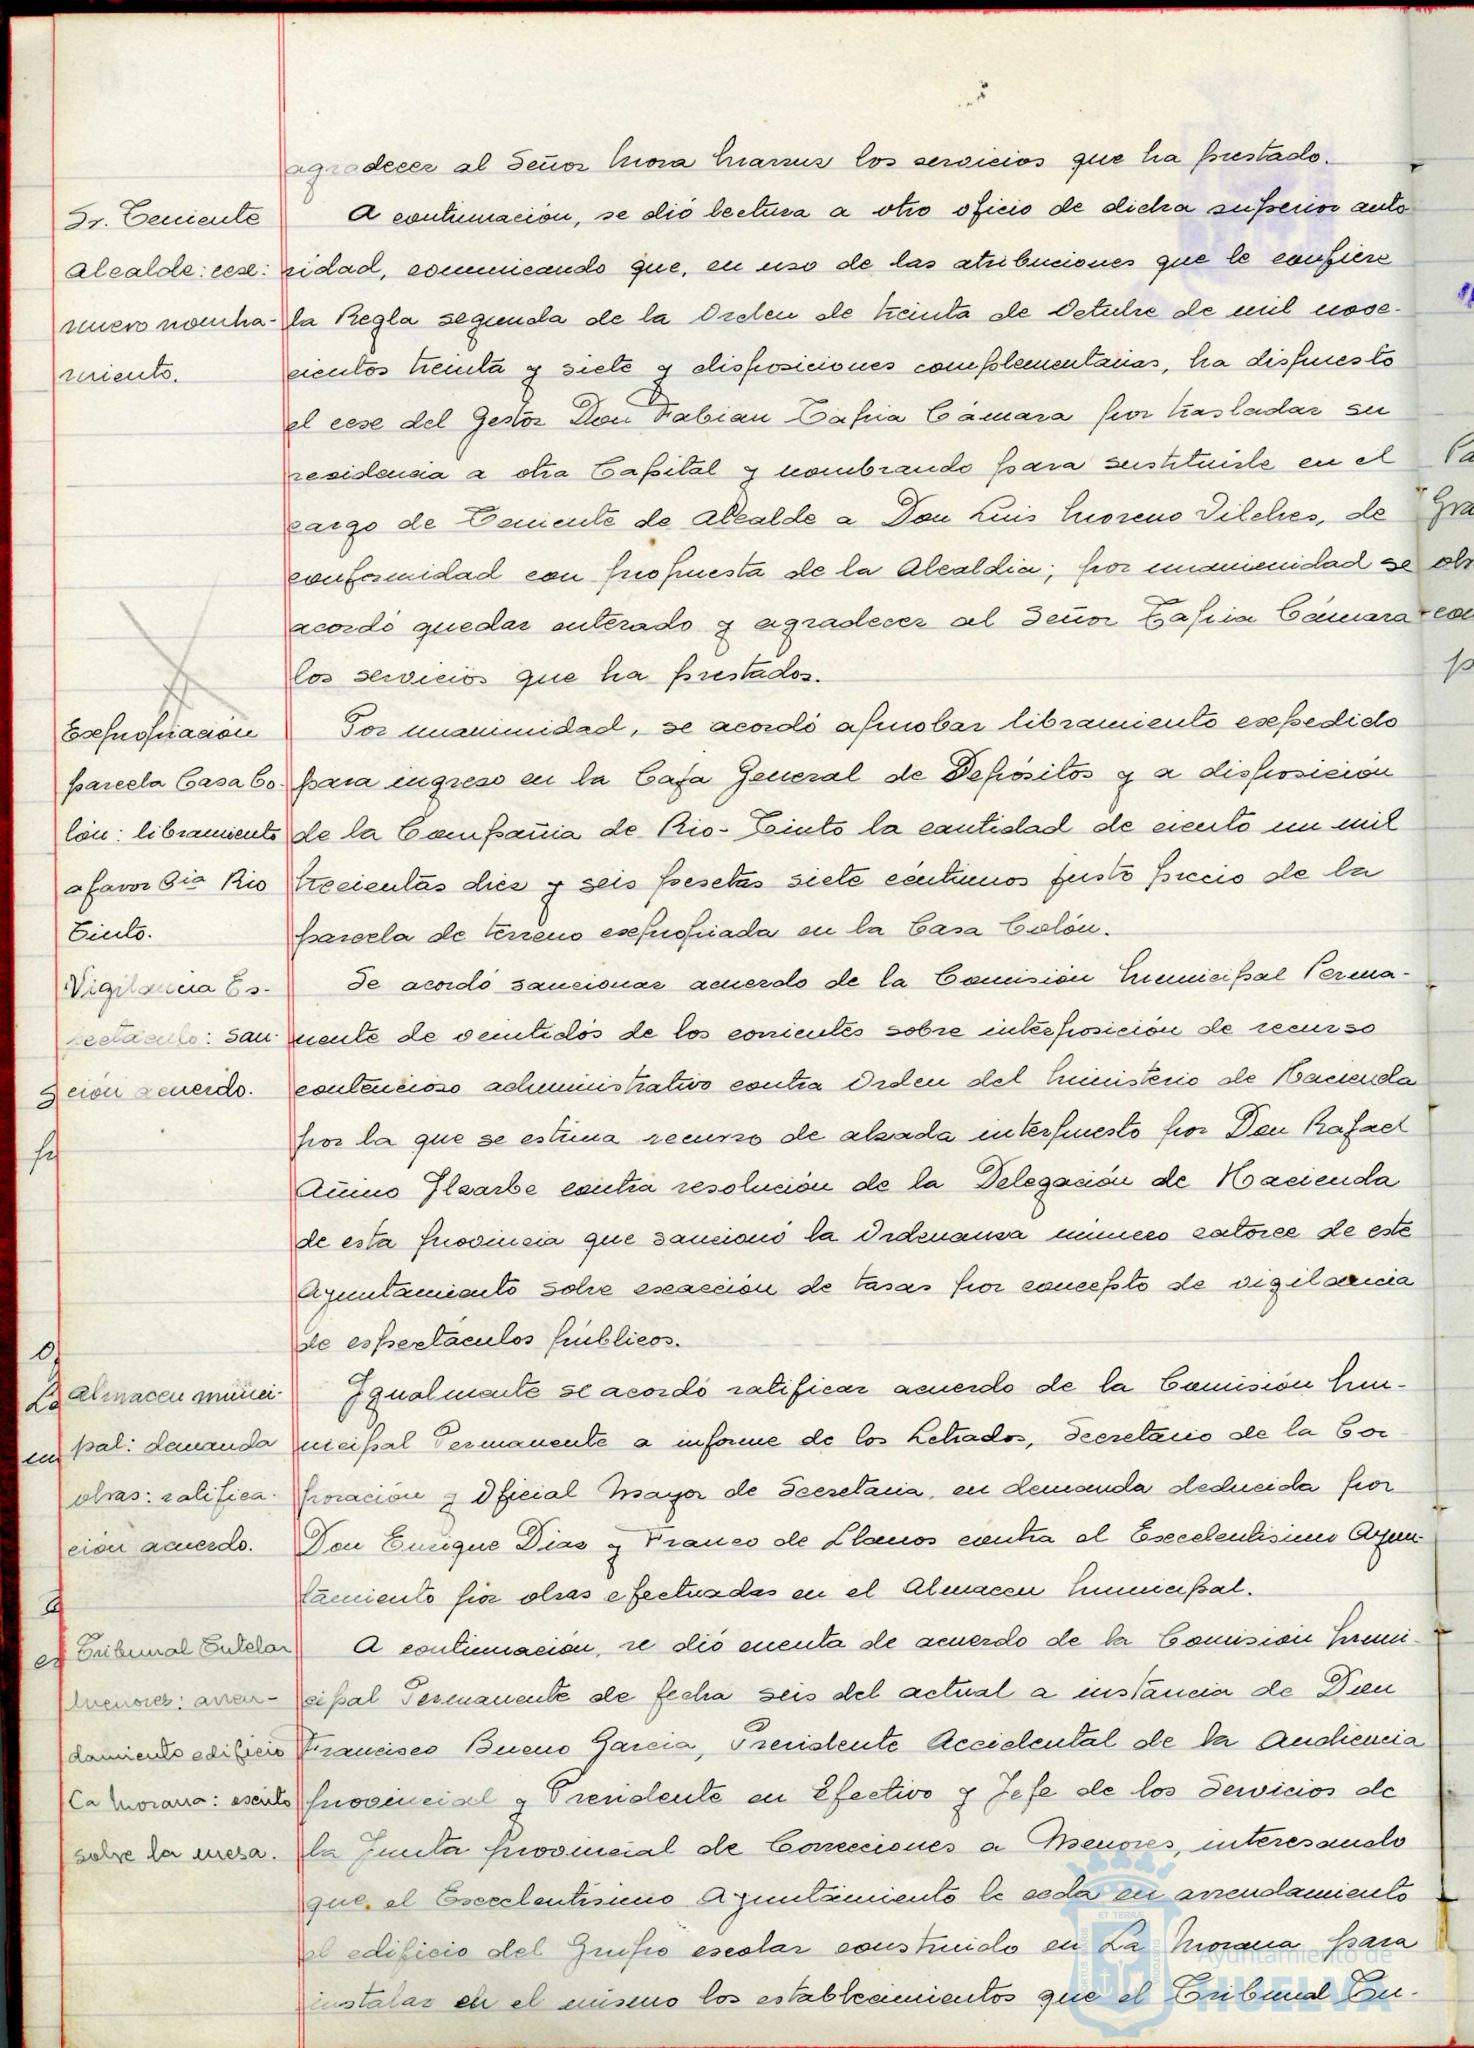 agradecer al Señor Mora los servicios que ha prestado.
Sr. Teniente
Alcalde: cese:
nuevo nombra-
miento.
A continuación, se dió lectura a otro oficio de dicha superior auto
ridad, comunicando que, en uso de las atribuciones que le confiere
la Regla segunda de la Orden de treinta de Octubre de mil nove-
cientos treinta y siete y disposiciones complementarias, ha dispuesto
el cese del Gestor Don Fabian Tapia Cámara por trasladar su
residencia a otra Capital y nombrando para sustituirle en el
cargo de Teniente de Alcalde a Don Luis Moreno Vilches, de
conformidad con propuesta de la Alcaldia; por unanimidad se
acordó quedar enterado y agradecer al Señor Tapia Cámara
los servicios que ha prestados.
Exepropiación
parcela Casa Co-
lón: libramiento
a favor Cia Rio
Tinto.
Por unanimidad, se acordó aprobar libramiento exepedido
para ingreso en la Caja General de Depósitos y a disposición
de la Compañia de Rio-Tinto la cantidad de ciento un mil
trecientas diez y seis pesetas siete céntimos justo precio de la
parcela de terreno exepropiada en la Casa Colón.
Vigilancia Es-
pectáculo: san-
ción acuerdo.
Se acordó sancionar acuerdo de la Comisión Municipal Perma-
nente de veintidós de los corrientes sobre interposición de recurso
contencioso administrativo contra Orden del Ministerio de Hacienda
por la que se estima recurso de alzada interpuesto por Don Rafael
Añino Ilzarbe contra resolución de la Delegación de Hacienda
de esta provincia que sancionó la Ordenanza número catorce de este
Ayuntamiento sobre exacción de tasas por concepto de vigilancia
de espectáculos públicos.
Almacen munici-
pal: demanda
obras: ratifica-
ción acuerdo.
Igualmente se acordó ratificar acuerdo de la Comisión Mu-
nicipal Permanente a informe de los Letrados, Secretario de la Cor
poración y Oficial Mayor de Secretaria, en demanda deducida por
Don Enrique Diaz y Franco de Llanos contra el Execelentísimo Ayun-
tamiento por obras efectuadas en el Almacen Municipal.
Tribunal Tutelar
Menores: arren-
damiento edificio
La Morana: escrito
sobre la mesa.
A continuación, se dió cuenta de acuerdo de la Comisión Muni-
cipal Permanente de fecha seis del actual a instancia de Don
Francisco Bueno Garcia, Presidente Accidental de la Audiencia
provincial y Presidente en Efectivo y Jefe de los Servicios de
la Junta provincial de Correcciones a Menores, interesando
que el Execelentísimo Ayuntamiento le ceda en arrendamiento
el edificio del Grupo escolar construido en La Morana para
instalar en el mismo los establecimientos que el Tribunal Tu-
Ayuntamiento de
HUELVA